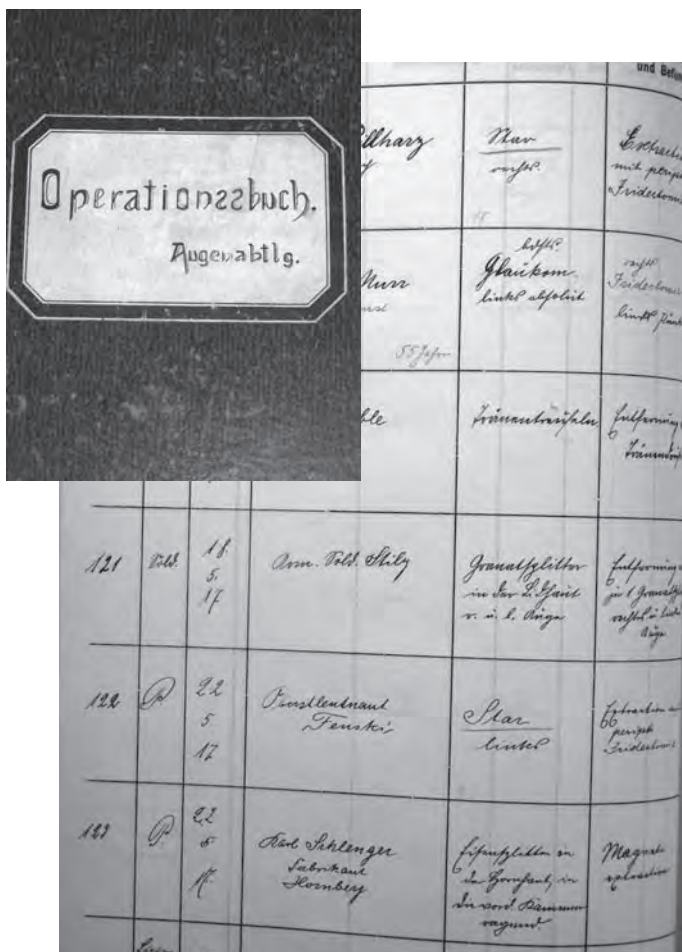 Operationssbuch.
Augenabtlg.
und Befun
illharz
Star
rechts.
Extractio
mit periph
Iridectomi
Glaukom.
links absolut
rechts
Iridectomi
links
55 Jahre
ble
Tränenträufeln
Entfernung
Tränendrü
121
Sold.
18.
5.
17
Arm. Sold. Stily
Granatsplitter
in der Lidhaut
r. u. l. Auge
Entfernung
je 1 Granatspl
rechts u. linke
Auge
122
P
22
5
17
Oberstleutnant
Fenski
Star
links
Extraction m
periph
Iridectomi
123
P
22
5
17.
Karl Schlenger
Fabrikant
Hornberg
Eisensplitter in
der Hornhaut, in
die vord. Kammer
ragend.
Magnet
extraction